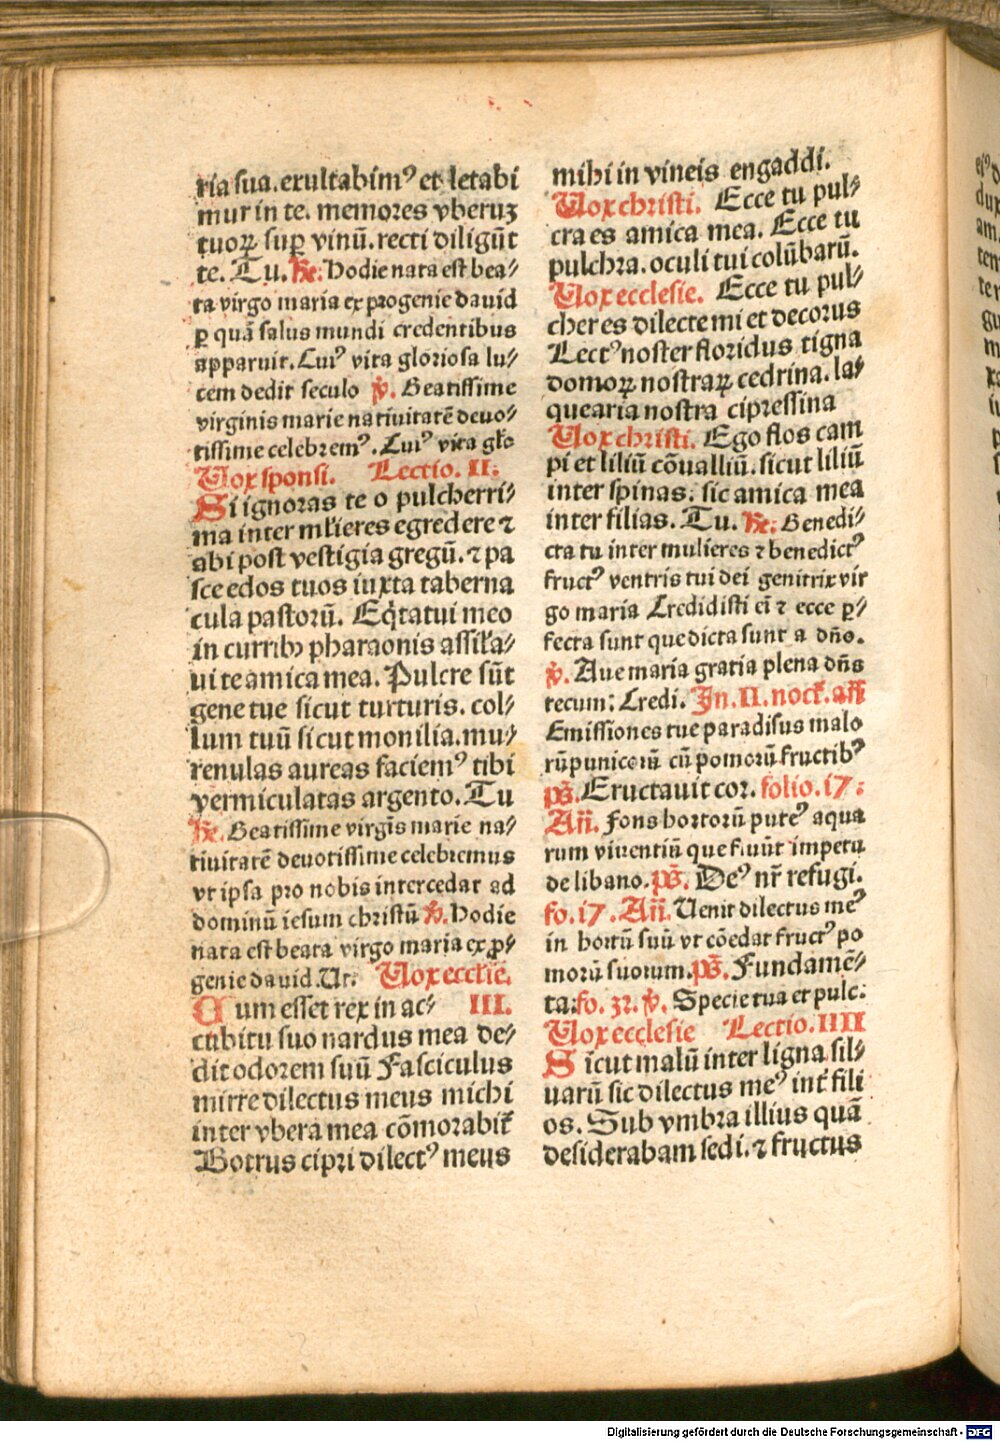 ria sua. exultabimꝰ et letabi
mur in te. memores vberuʒ
tuoꝝ suꝑ vinū. recti diligūt
te. Tu. ℞. Hodie nata est bea⸗
ta virgo maria ex progenie dauid
ꝑ quā salus mundi credentibus
apparuit. Cuiꝰ vita gloriosa lu⸗
cem dedit seculo ℣. Beatissime
virginis marie natiuitatē deuo⸗
tissime celebremꝰ. Cuiꝰ vita glo
Uox sponsi. Lectio. II.
Si ignoras te o pulcherri⸗
ma inter mlieres egredere ⁊
abi post vestigia gregū. ⁊ pa
sce edos tuos iuxta taberna
cula pastorū. Eq̄tatui meo
in curribꝫ pharaonis assila⸗
ui te amica mea. Pulcre sūt
gene tue sicut turturis. col⸗
lum tuū sicut monilia. mu⸗
renulas aureas faciemꝰ tibi
vermiculatas argento. Tu
℞. Beatissime virgīs marie na⸗
tiuitatē deuotissime celebremus
vt ipsa pro nobis intercedat ad
dominū iesum christū ℣. Hodie
nata est beata virgo maria ex ꝓ⸗
genie dauid. Ut. Uox ecclie.
Cum esset rex in ac⸗ III.
cubitu suo nardus mea de⸗
dit odorem suū Fasciculus
mirre dilectus meus michi
inter vbera mea cōmorabit᷑
Botrus cipri dilectꝰ meus
mihi in vineis engaddi.
Uox christi. Ecce tu pul⸗
cra es amica mea. Ecce tu
pulchra. oculi tui colūbarū.
Uox ecclesie. Ecce tu pul⸗
cher es dilecte mi et decorus
Lectꝰ noster floridus tigna
domoꝝ nostraꝝ cedrina. la⸗
quearia nostra cipressina
Uox christi. Ego flos cam
pi et liliū cōualliū. sicut liliū
inter spinas. sic amica mea
inter filias. Tu. ℞. Benedi⸗
cta tu inter mulieres ⁊ benedictꝰ
fructꝰ ventris tui dei genitrix vir
go maria Credidisti ei ⁊ ecce ꝑ⸗
fecta sunt que dicta sunt a dño.
℣. Aue maria gratia plena dñs
tecum: Credi. In. II. noct. aff
Emissiones tue paradisus malo
rū punicorū cū pomorū fructibꝰ
ps̄. Eructauit cor. folio. 17.
Añ. fons hortorū puteꝰ aqua
rum viuentiū que fluūt impetu
de libano. ps̄. Deꝰ nr̄ refugi.
fo. 17. Añ. Uenit dilectus meꝰ
in hortū suū vt cōedat fructꝰ po
morū suorum. ps̄. Fundamē⸗
ta: fo. 32. ℣. Specie tua et pulc.
Uox ecclesie Lectio. IIII
Sicut malū inter ligna sil⸗
uarū sic dilectus meꝰ int᷑ fili
os. Sub vmbra illius quā
desiderabam sedi. ⁊ fructus
Digitalisierung gefördert durch die Deutsche Forschungsgemeinschaft - DFG